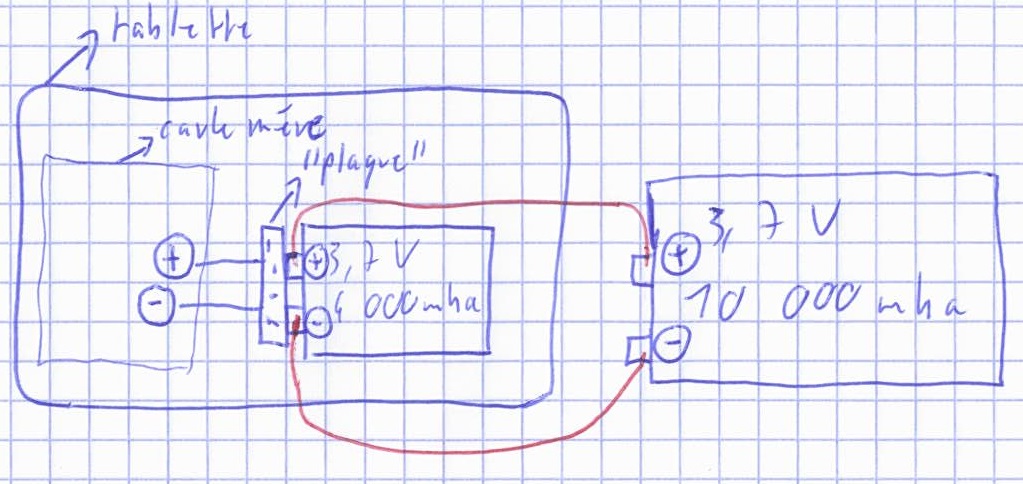 tablette
carte mère
"plaque"
+ 3,7 V
- 4 000 mha
+
-
+ 3,7 V
10 000 mha
-